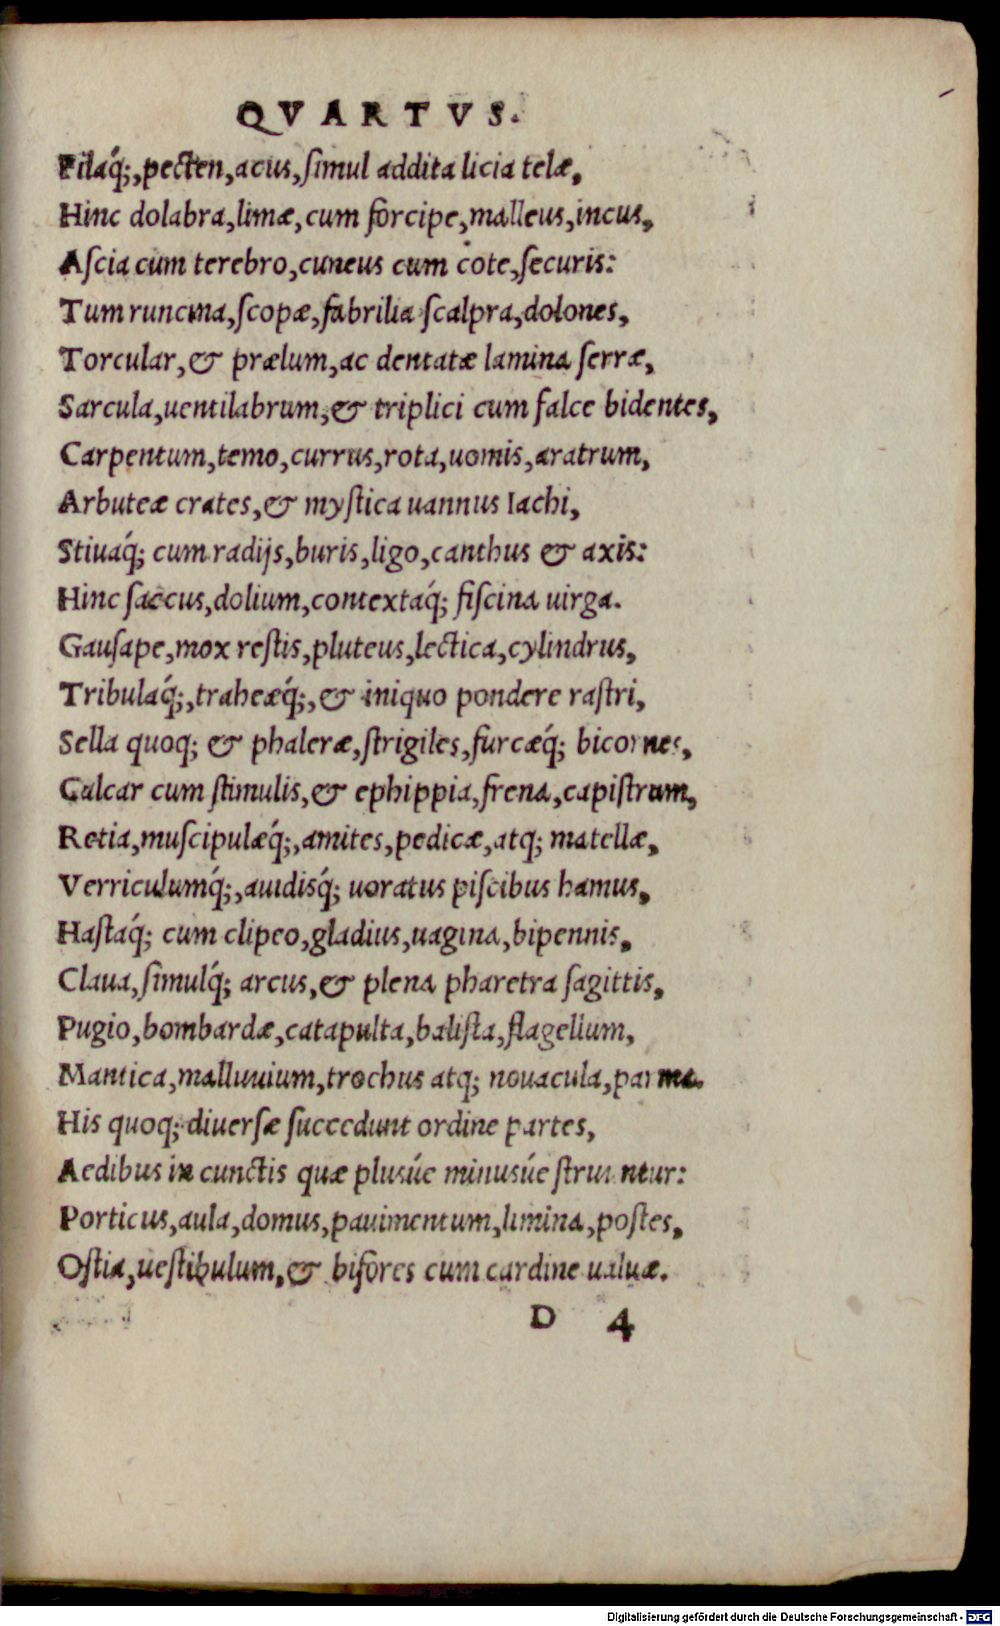 QVARTVS.
Pilaq́;,pecten,acus,ſimul addita licia telæ,
Hinc dolabra,limæ,cum forcipe,malleus,incus,
Aſcia cùm terebro,cuneus cum cote,ſecuris:
Tum runcina,ſcopæ,fabrilia ſcalpra,dolones,
Torcular,& prælum,ac dentatæ lamina ſerræ,
Sarcula,uentilabrum,& triplici cum falce bidentes,
Carpentum,temo,currus,rota,uomis,aratrum,
Arbuteæ crates,& myſtica uannus Iachi,
Stiuaq́; cum radijs,buris,ligo,canthus & axis:
Hinc ſaccus,dolium,contextaq́; fiſcina uirga.
Gauſape,mox reſtis,pluteus,lectica,cylindrus,
Tribulaq́;,traheæq́;,& iniquo pondere raſtri,
Sella quoq; & phaleræ,ſtrigiles,furcæq́; bicornes,
Calcar cum ſtimulis,& ephippia,frena,capiſtrum,
Retia,muſcipulæq́;,amites,pedicæ,atq; matellæ,
Verriculumq́;,auidisq́; uoratus piſcibus hamus,
Haſtaq́; cum clipeo,gladius,uagina,bipennis,
Claua,ſimulq́; arcus,& plena pharetra ſagittis,
Pugio,bombardæ,catapulta,baliſta,flagellum,
Mantica,malluuium,trochus atq; nouacula,parma.
His quoq; diuerſæ ſuccedunt ordine partes,
Aedibus in cunctis quæ pluśue minuśue ſtruuntur:
Porticus,aula,domus,pauimentum,limina,poſtes,
Oſtia,ueſtibulum,& bifores cum cardine ualuæ.
D 4
Digitalisierung gefördert durch die Deutsche Forschungsgemeinschaft - DFG